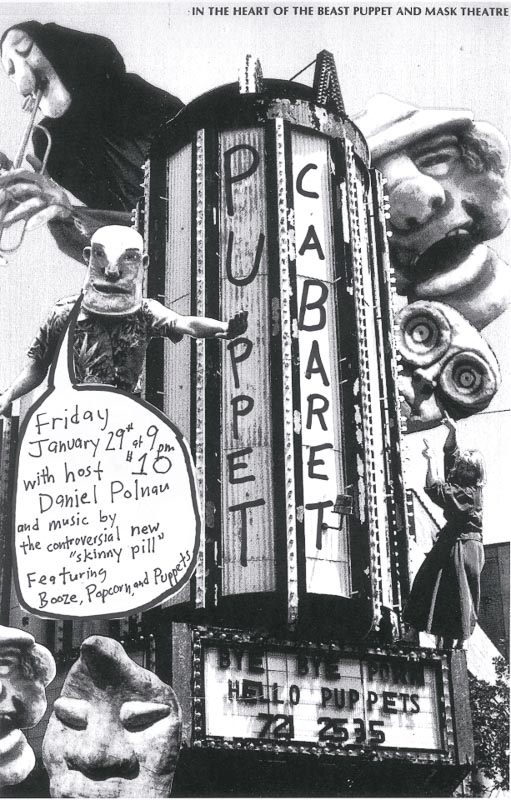 IN THE HEART OF THE BEAST PUPPET AND MASK THEATRE
PUPPET
CABARET
Friday
January 29th at 9pm
$10
with host
Daniel Polnau
and music by
the controversial new
"skinny pill"
Featuring
Booze, Popcorn, and Puppets
BYE BYE PORN
HELLO PUPPETS
721 2535